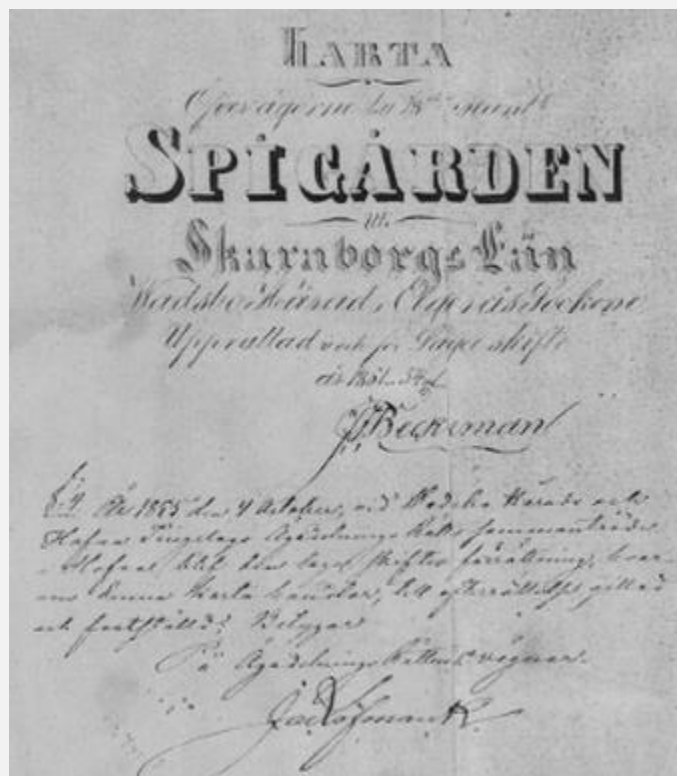 KARTA
Öfver ägorne till
SPIGÅRDEN
uti
Skaraborgs Län
Wadsbo Härad, Elgerås Sockn
Upprättad och för Laga skifte
år
Beckman
År 1855 den 4 October, vid Wadsbo Härads och
Hofva Tingslags Ägodelnings Rätts sammanträde
i Hofva blef den laga skiftes förrättning, hvar-
om denna Karta handlar, till efterrättelse gillad
och fastställd; Betygar
På Ägodelnings Rättens vägnar.